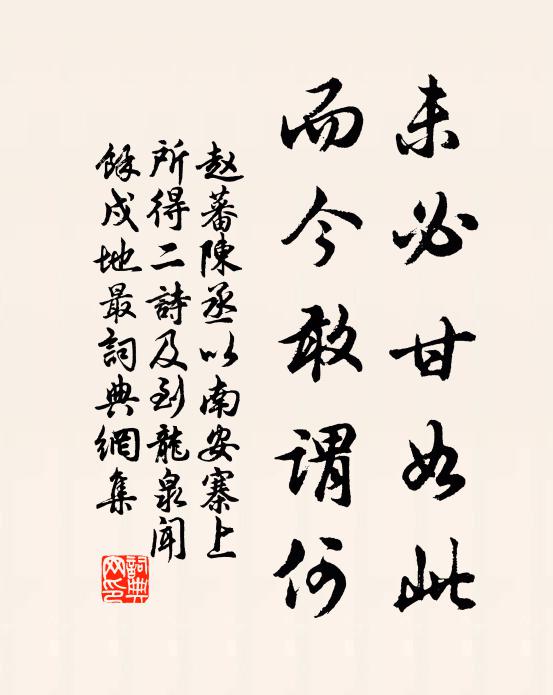 未必甘如此
而今敢谓何
赵蕃陳丞以南安寨上
所得二詩及到龍泉聞
餘戍地最詞典網集
詞典
网印